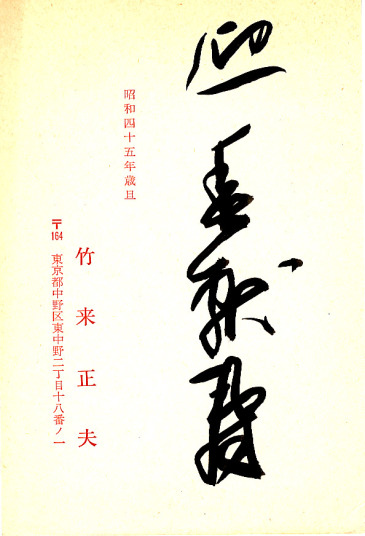 迎春献寿
昭和四十五年歳旦
竹来正夫
〒164 東京都中野区東中野二丁目十八番ノ一